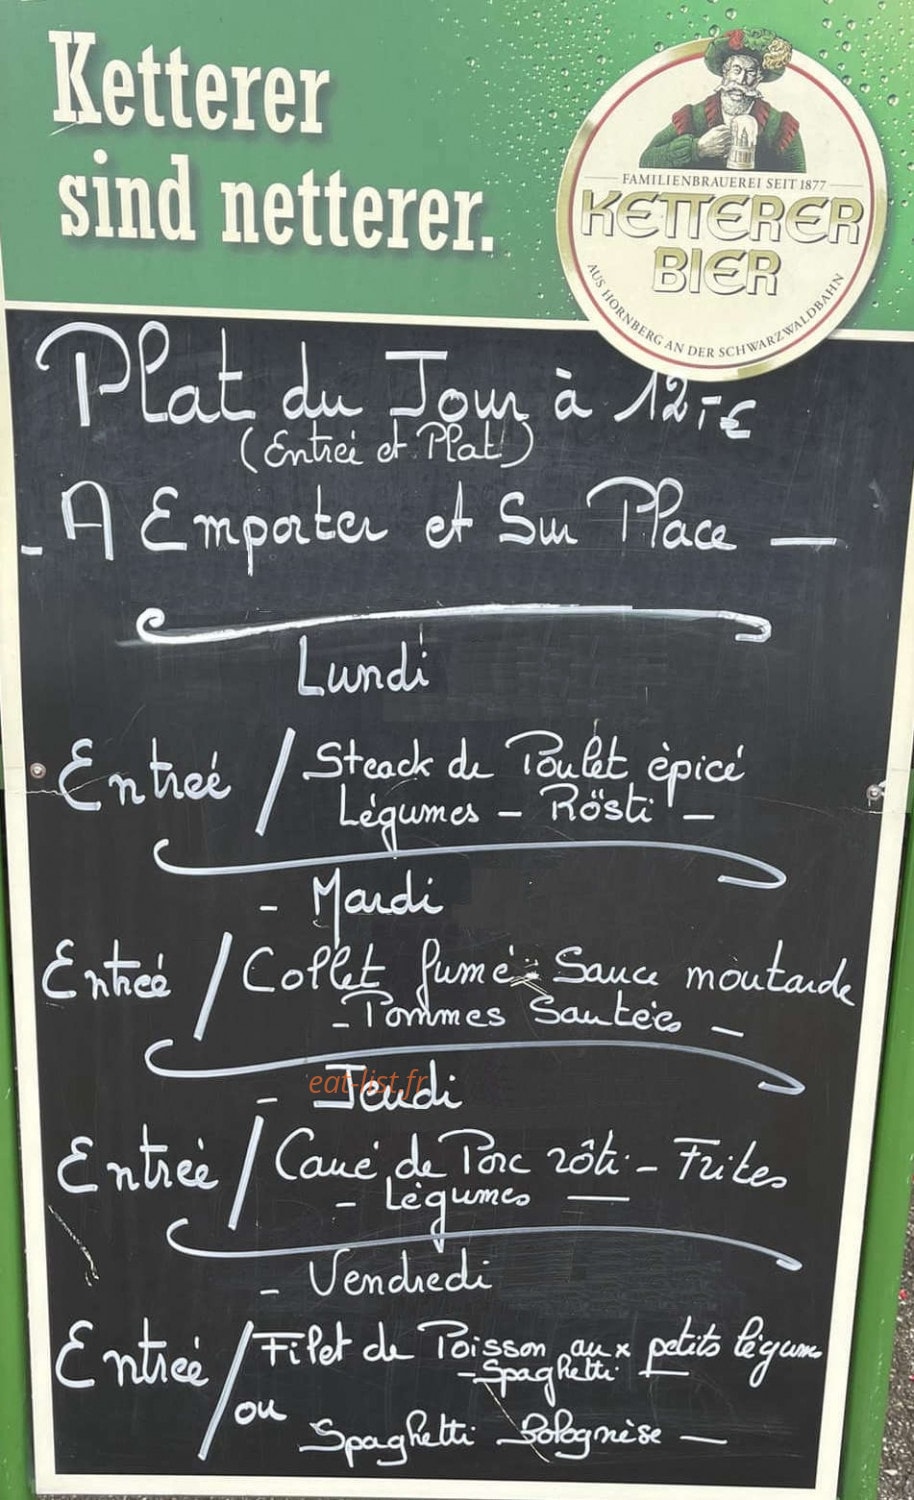 Ketterer
sind netterer.
FAMILIENBRAUEREI SEIT 1877
KETTERER
BIER
AUS HORNBERG AN DER SCHWARZWALDBAHN
Plat du Jour à 12,-€
(Entrée et Plat)
- A Emporter et Sur Place -
Lundi
Entrée / Steack de Poulet èpicé
Légumes - Rösti -
- Mardi
Entrée / Collet fumé - Sauce moutarde
- Pommes Sautées -
eat-list.fr
- Jeudi
Entrée / Carré de Porc rôti - Frites
- Légumes -
- Vendredi
Entrée / Filet de Poisson aux petits légumes
- Spaghetti -
ou
Spaghetti Bolognèse -